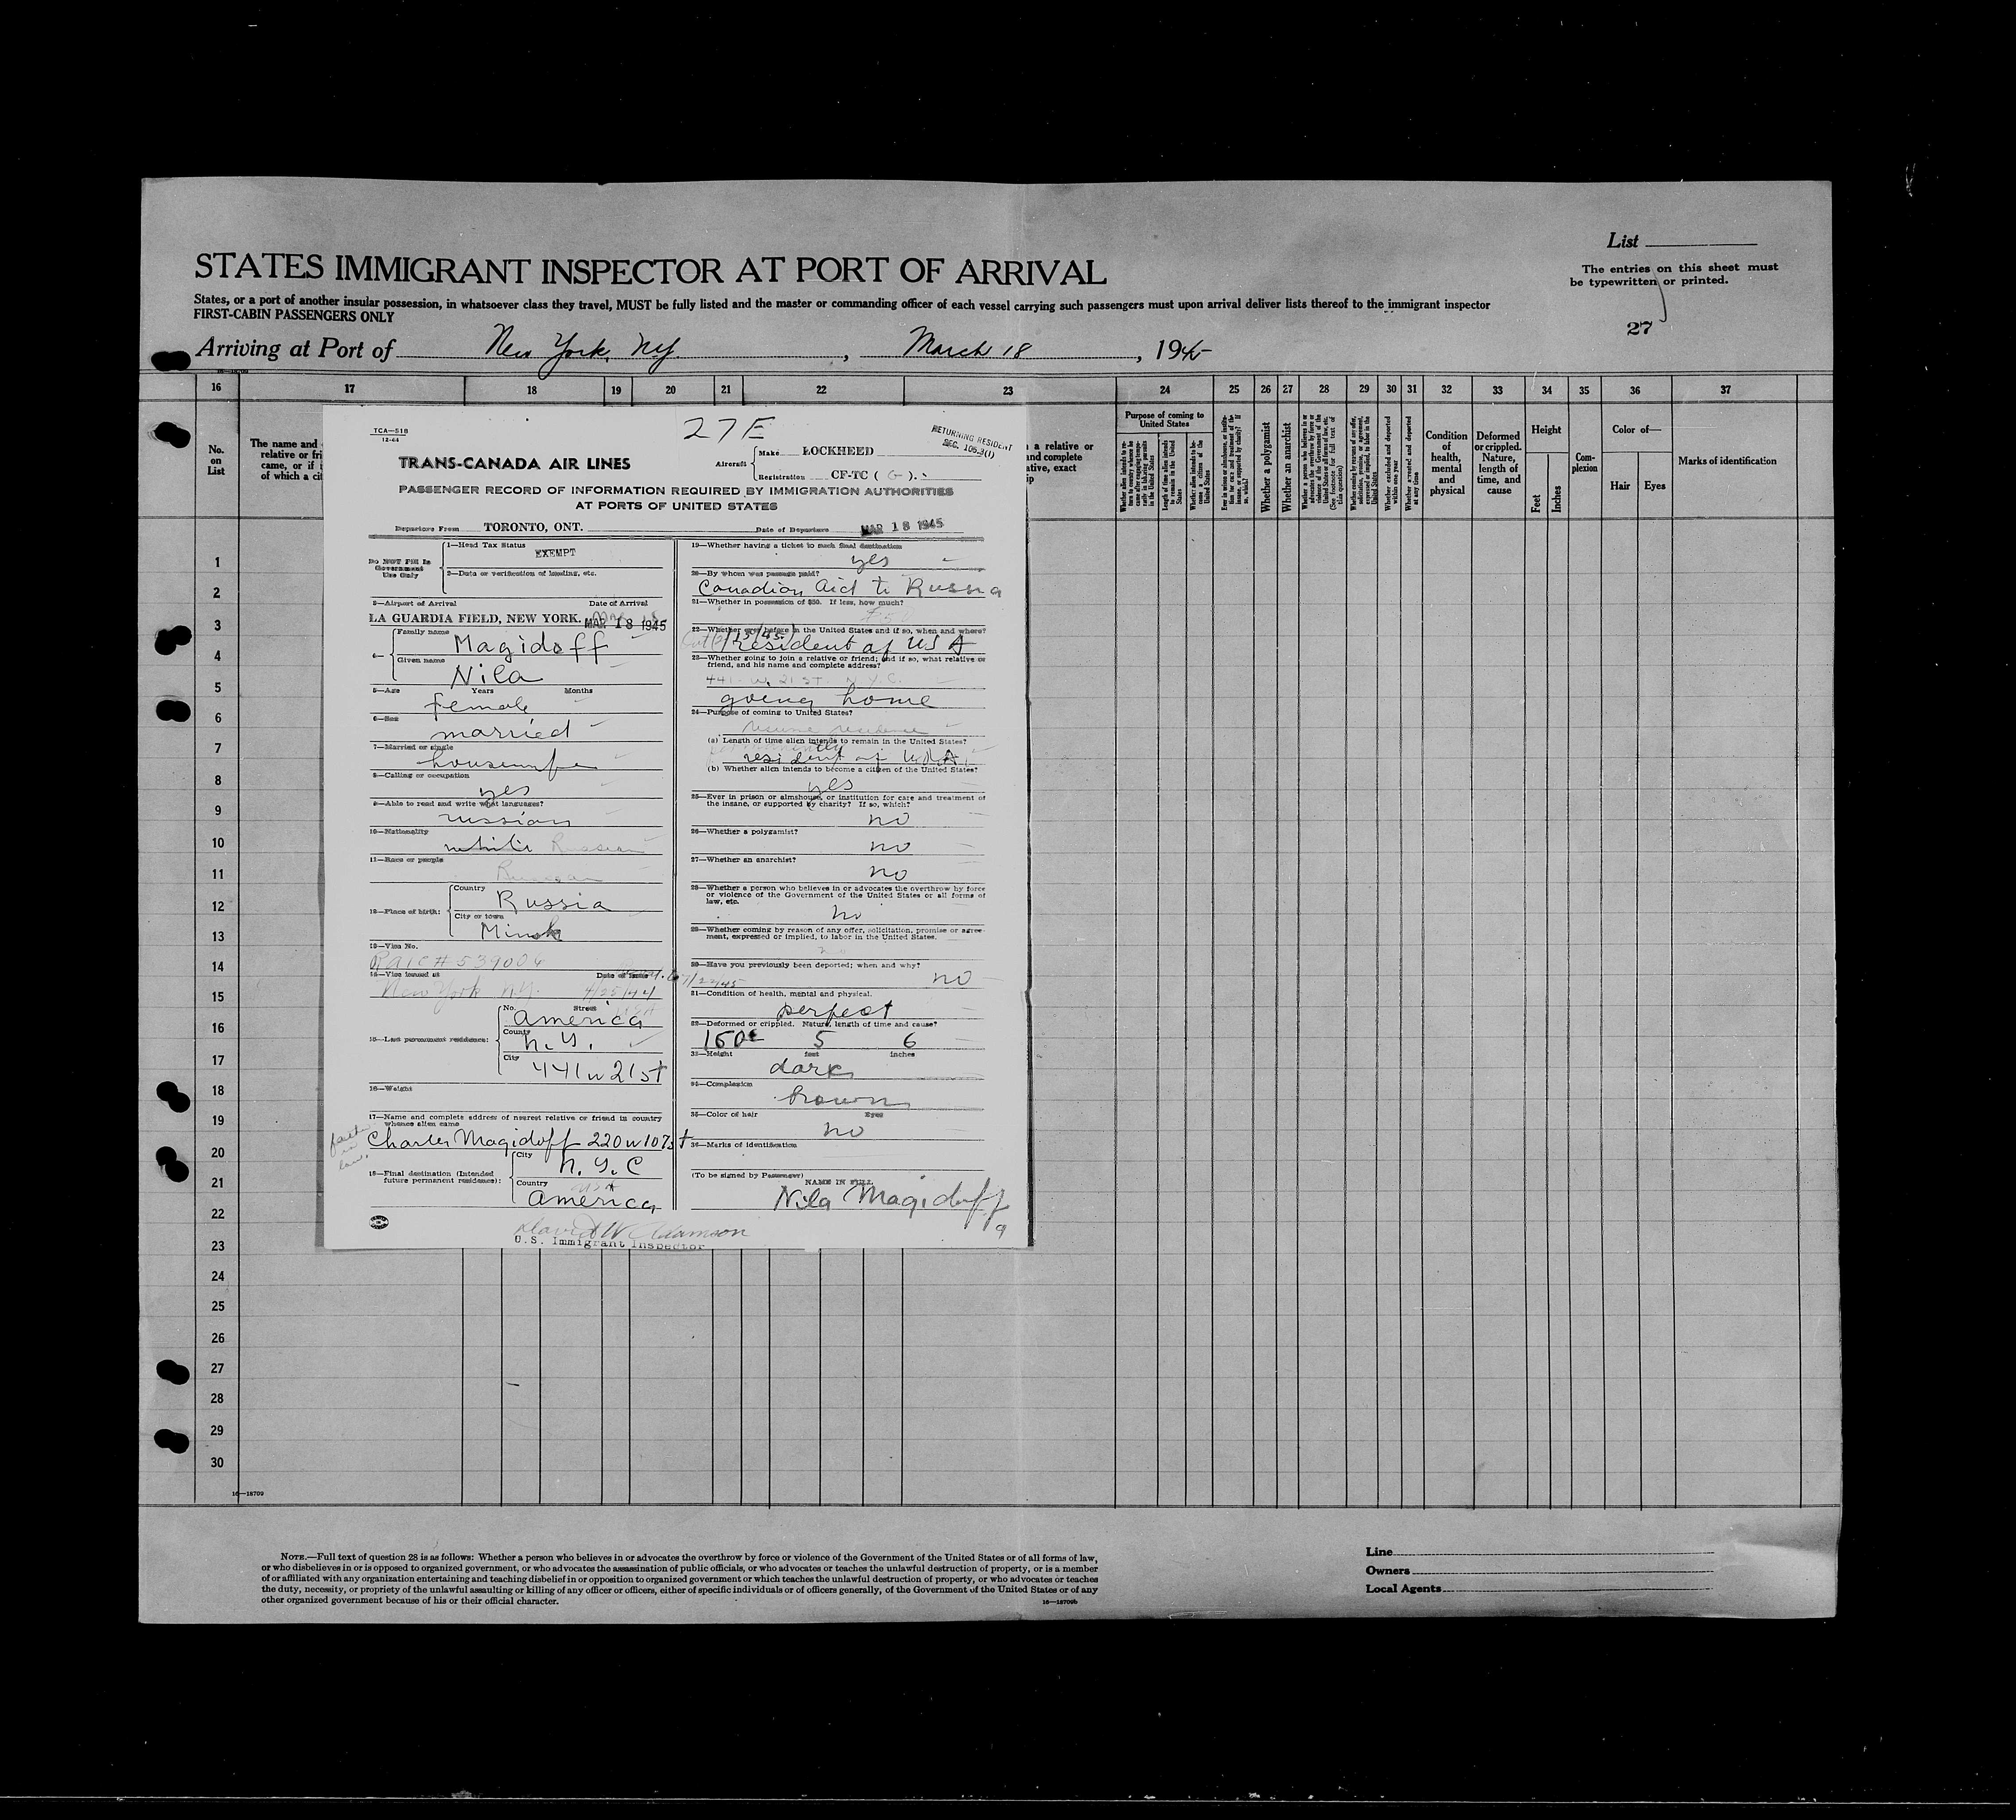 List
STATES IMMIGRANT INSPECTOR AT PORT OF ARRIVAL
The entries on this sheet must
be typewritten or printed.
States, or a port of another insular possession, in whatsoever class they travel, MUST be fully listed and the master or commanding officer of each vessel carrying such passengers must upon arrival deliver lists thereof to the immigrant inspector
FIRST-CABIN PASSENGERS ONLY
27
Arriving at Port of New York, NY, March 18, 1945
16 17 18 19 20 21 22 23 24 25 26 27 28 29 30 31 32 33 34 35 36 37
No. on List
The name and
relative or fri
came, or if i
of which a cit
a relative or
and complete
ative, exact
ip
Purpose of coming to
United States
Whether a polygamist
Whether an anarchist
Whether arrested and deported
at any time
Condition
of
health,
mental
and
physical
Deformed
or crippled.
Nature,
length of
time, and
cause
Height
Feet
Inches
Com-
plexion
Color of—
Hair
Eyes
Marks of identification
TCA—518
12-44
27E
RETURNING RESIDENT
SEC. 106.3(1)
TRANS-CANADA AIR LINES
Aircraft
Make LOCKHEED
Registration CF-TC ( G ).
PASSENGER RECORD OF INFORMATION REQUIRED BY IMMIGRATION AUTHORITIES
AT PORTS OF UNITED STATES
Departure From TORONTO, ONT.
Date of Departure MAR 18 1945
Do NOT Fill In
Government
Use Only
1—Head Tax Status
EXEMPT
2—Data or verification of landing, etc.
3—Airport of Arrival
Date of Arrival
LA GUARDIA FIELD, NEW YORK. MAR 18 1945
4—
Family name
Magidoff
Given name
Nila
5—Age Years Months
female
6—Sex
married
7—Married or single
housewife
8—Calling or occupation
yes
9—Able to read and write what languages?
russian
10—Nationality
white Russian
11—Race or people
Russian
12—Place of birth:
Country
Russia
City or town
Minsk
13—Visa No.
14—Visa issued at
Date of Issue
New York N.Y. 4/25/44
15—Last permanent residence:
No. Street
America
County
N.Y.
City
441 w 21 st
16—Weight
17—Name and complete address of nearest relative or friend in country
whence alien came
father
in
law.
Charles Magidoff 220 w 107 st
18—Final destination (Intended
future permanent residence):
City
N.Y.C
Country
America
David W. Adamson
U.S. Immigrant Inspector
19—Whether having a ticket to such final destination
yes
20—By whom was passage paid?
Canadian Aid to Russia
21—Whether in possession of $50. If less, how much?
22—Whether ever before in the United States and if so, when and where?
resident of USA
23—Whether going to join a relative or friend; and if so, what relative or
friend, and his name and complete address?
441 W. 21 ST. N.Y.C.
going home
24—Purpose of coming to United States?
resume residence
(a) Length of time alien intends to remain in the United States?
permanently
resident of USA
(b) Whether alien intends to become a citizen of the United States?
yes
25—Ever in prison or almshouse, or institution for care and treatment of
the insane, or supported by charity? If so, which?
no
26—Whether a polygamist?
no
27—Whether an anarchist?
no
28—Whether a person who believes in or advocates the overthrow by force
or violence of the Government of the United States or all forms of
law, etc.
no
29—Whether coming by reason of any offer, solicitation, promise or agree-
ment, expressed or implied, to labor in the United States.
no
30—Have you previously been deported; when and why?
no
31—Condition of health, mental and physical.
perfect
32—Deformed or crippled. Nature, length of time and cause?
5 6
33—Height feet inches
dark
34—Complexion
brown
35—Color of hair Eyes
no
36—Marks of identification
(To be signed by Passenger)
NAME IN FULL
Nila Magidoff
9
1
2
3
4
5
6
7
8
9
10
11
12
13
14
15
16
17
18
19
20
21
22
23
24
25
26
27
28
29
30
16—18709
NOTE.—Full text of question 28 is as follows: Whether a person who believes in or advocates the overthrow by force or violence of the Government of the United States or of all forms of law,
or who disbelieves in or is opposed to organized government, or who advocates the assassination of public officials, or who advocates or teaches the unlawful destruction of property, or is a member
of or affiliated with any organization entertaining and teaching disbelief in or opposition to organized government or which teaches the unlawful destruction of property, or who advocates or teaches
the duty, necessity, or propriety of the unlawful assaulting or killing of any officer or officers, either of specific individuals or of officers generally, of the Government of the United States or of any
other organized government because of his or their official character.
16—18709b
Line
Owners
Local Agents